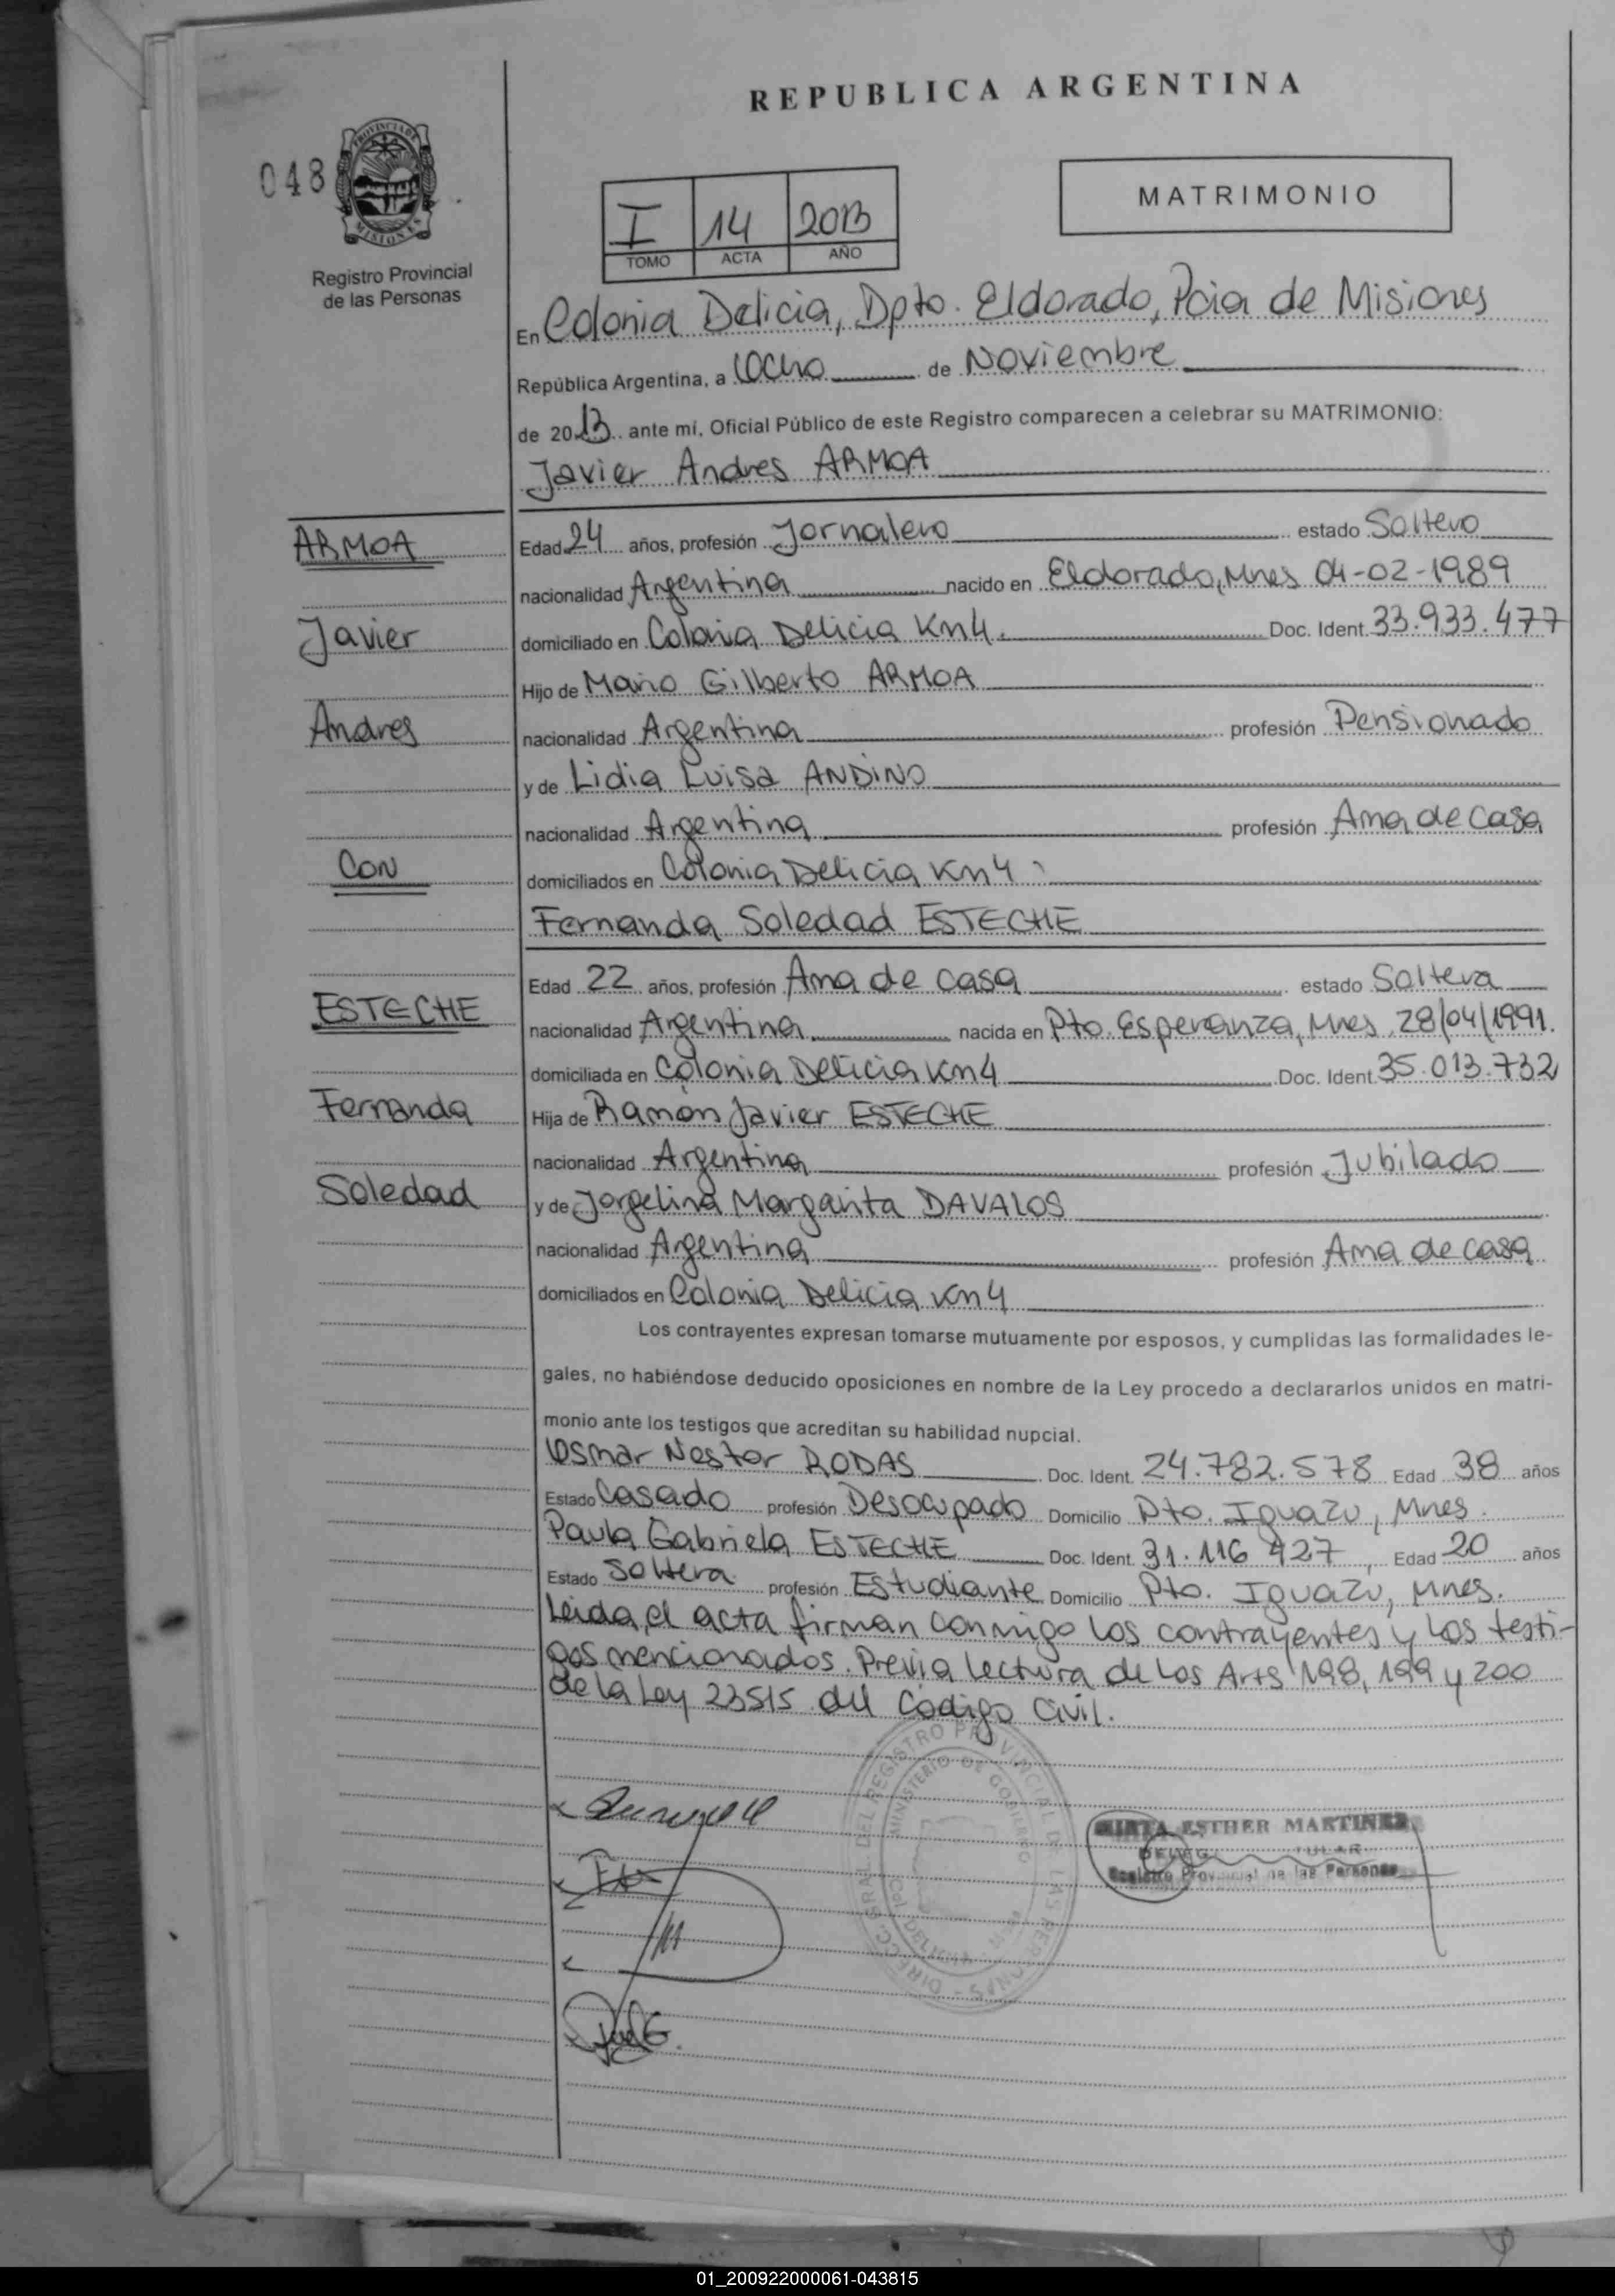 REPUBLICA ARGENTINA
048
PROVINCIA DE
MISIONES
Registro Provincial
de las Personas
I 14 2013
TOMO ACTA AÑO
MATRIMONIO
En Colonia Delicia, Dpto. Eldorado, Pcia de Misiones
República Argentina, a Ocho de Noviembre
de 2013 ante mí, Oficial Público de este Registro comparecen a celebrar su MATRIMONIO:
Javier Andres ARMOA
ARMOA
Javier
Andres
Con
ESTECHE
Fernanda
Soledad
Edad 24 años, profesión Jornalero estado Soltero
nacionalidad Argentina nacido en Eldorado, Mnes 04-02-1989
domiciliado en Colonia Delicia Km4. Doc. Ident. 33.933.477
Hijo de Mario Gilberto ARMOA
nacionalidad Argentina profesión Pensionado
y de Lidia Luisa ANDINO
nacionalidad Argentina profesión Ama de casa
domiciliados en Colonia Delicia Km4
Fernanda Soledad ESTECHE
Edad 22 años, profesión Ama de casa estado Soltera
nacionalidad Argentina nacida en Pto. Esperanza, Mnes 28/04/1991.
domiciliada en Colonia Delicia Km4 Doc. Ident. 35.013.732
Hija de Ramón Javier ESTECHE
nacionalidad Argentina profesión Jubilado
y de Jorgelina Margarita DAVALOS
nacionalidad Argentina profesión Ama de casa
domiciliados en Colonia Delicia Km4
Los contrayentes expresan tomarse mutuamente por esposos, y cumplidas las formalidades le-
gales, no habiéndose deducido oposiciones en nombre de la Ley procedo a declararlos unidos en matri-
monio ante los testigos que acreditan su habilidad nupcial.
Osmar Nestor RODAS Doc. Ident. 24.782.578 Edad 38 años
Estado Casado profesión Desocupado Domicilio Pto. Iguazu, Mnes.
Paula Gabriela ESTECHE Doc. Ident. 31.116 427, Edad 20 años
Estado Soltera profesión Estudiante Domicilio Pto. Iguazu, Mnes.
Leida el acta firman conmigo los contrayentes y los testi-
gos mencionados. Previa lectura de los Arts 198, 199 y 200
de la Ley 23515 del Código Civil.
DIRECC. GRAL. DEL REGISTRO PROVINCIAL DE LAS PERSONAS
MINISTERIO DE GOBIERNO
DELICIA
MIRTA ESTHER MARTINEZ
Registro Provincial de las Personas
01_200922000061-043815